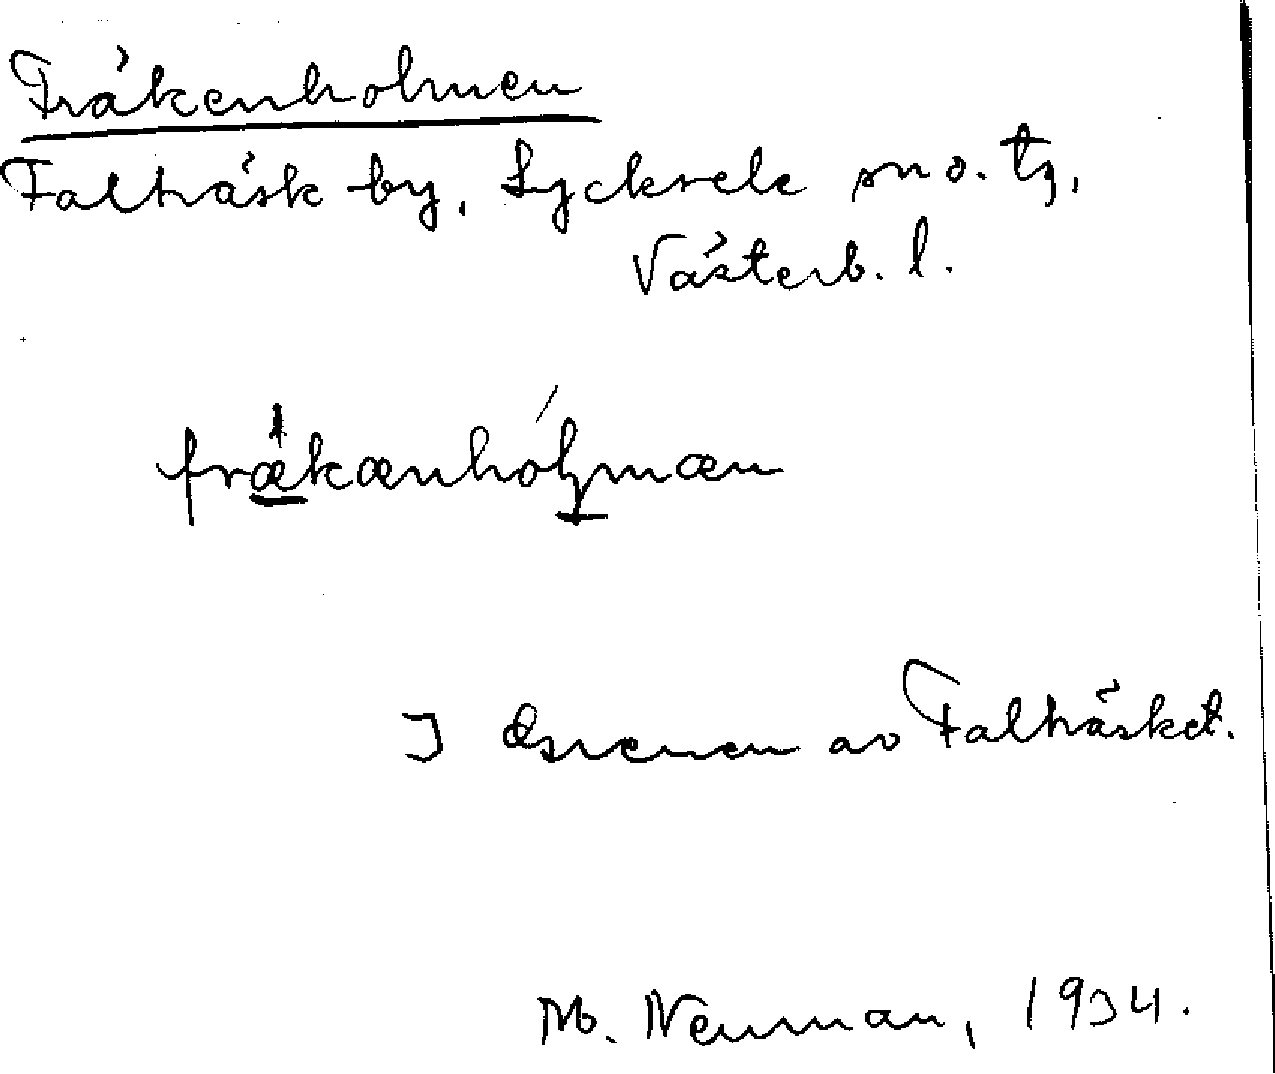 Fräkenholmen
Falträsk by, Lycksele sn o. tg,
Västerb. l.
frækænhólmæn
I av Falträsket.
M. Neuman, 1934.